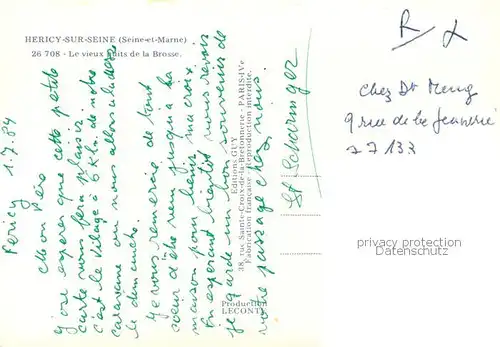 HERICY-SUR-SEINE (Seine-et-Marne)
26 708 - Le vieux Puits de la Brosse.
Pericy 1.7.84
Mon Père
J'ose esperer que cette petite
carte vous fera plaisir
c'est le village à 6 Klm. de notre
caravane ou nous allons a la messe
le dimanche.
Je vous remercie de tout
cœur d'etre venu jusqu'a la
maison pour benir ma croix
En esperant bientôt vous revoir
je garde un bon souvenir de
votre passage chez nous.
Editions GUY
38, rue Sainte-Croix-de-la-Bretonnerie - PARIS-IVe
Fabrication française - Reproduction interdite.
Production
LECONTE
St Scharinger
R
chez Dr
9 rue de la
77133
privacy protection
Datenschutz